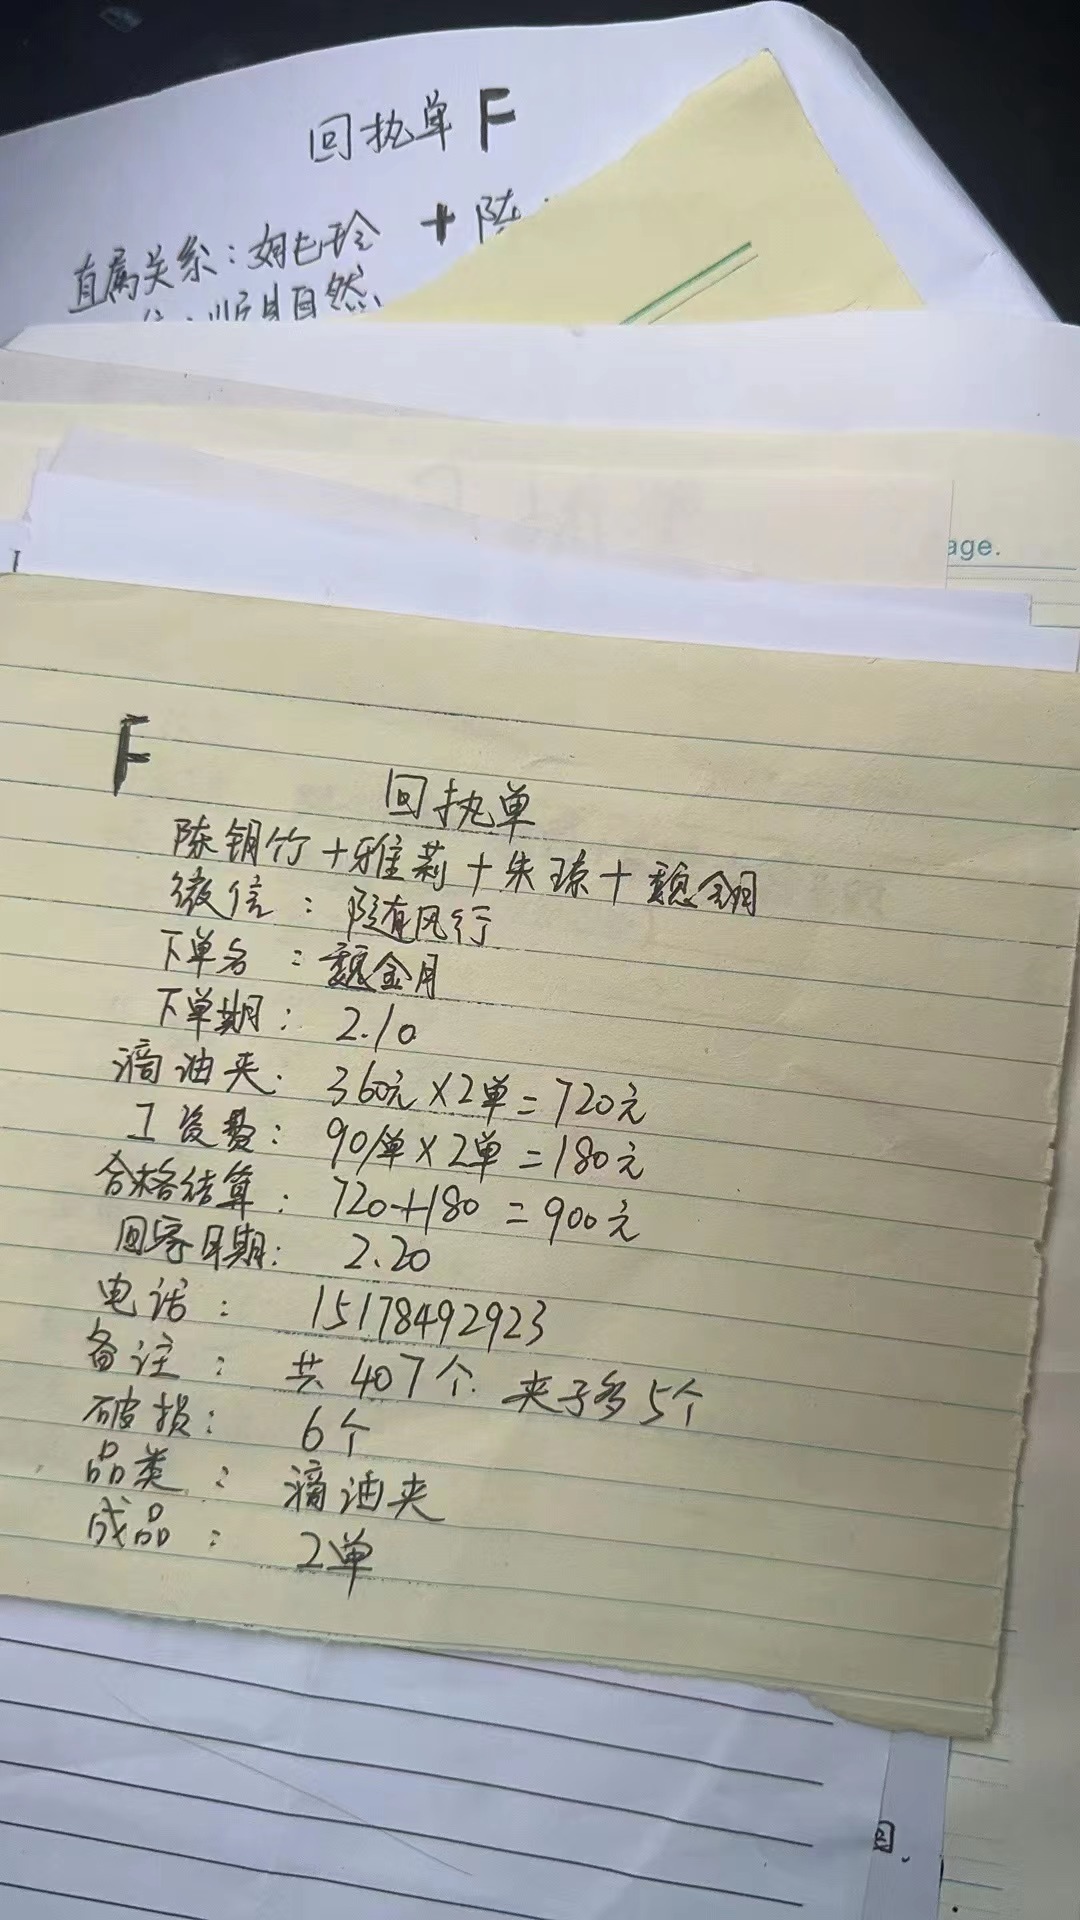 回执单 F
直属关系：姆七玲 + 陈
顺其自然
age.
F
回执单
陈钥竹+雅莉+朱琼+魏金玥
微信：随有风行
下单名：魏金月
下单期：2.10
滴油夹：360元×2单=720元
工资费：90/单×2单=180元
合格结算：720+180=900元
回寄日期：2.20
电话：15178492923
备注：共407个.夹子多5个
破损：6个
品类：滴油夹
成品：2单